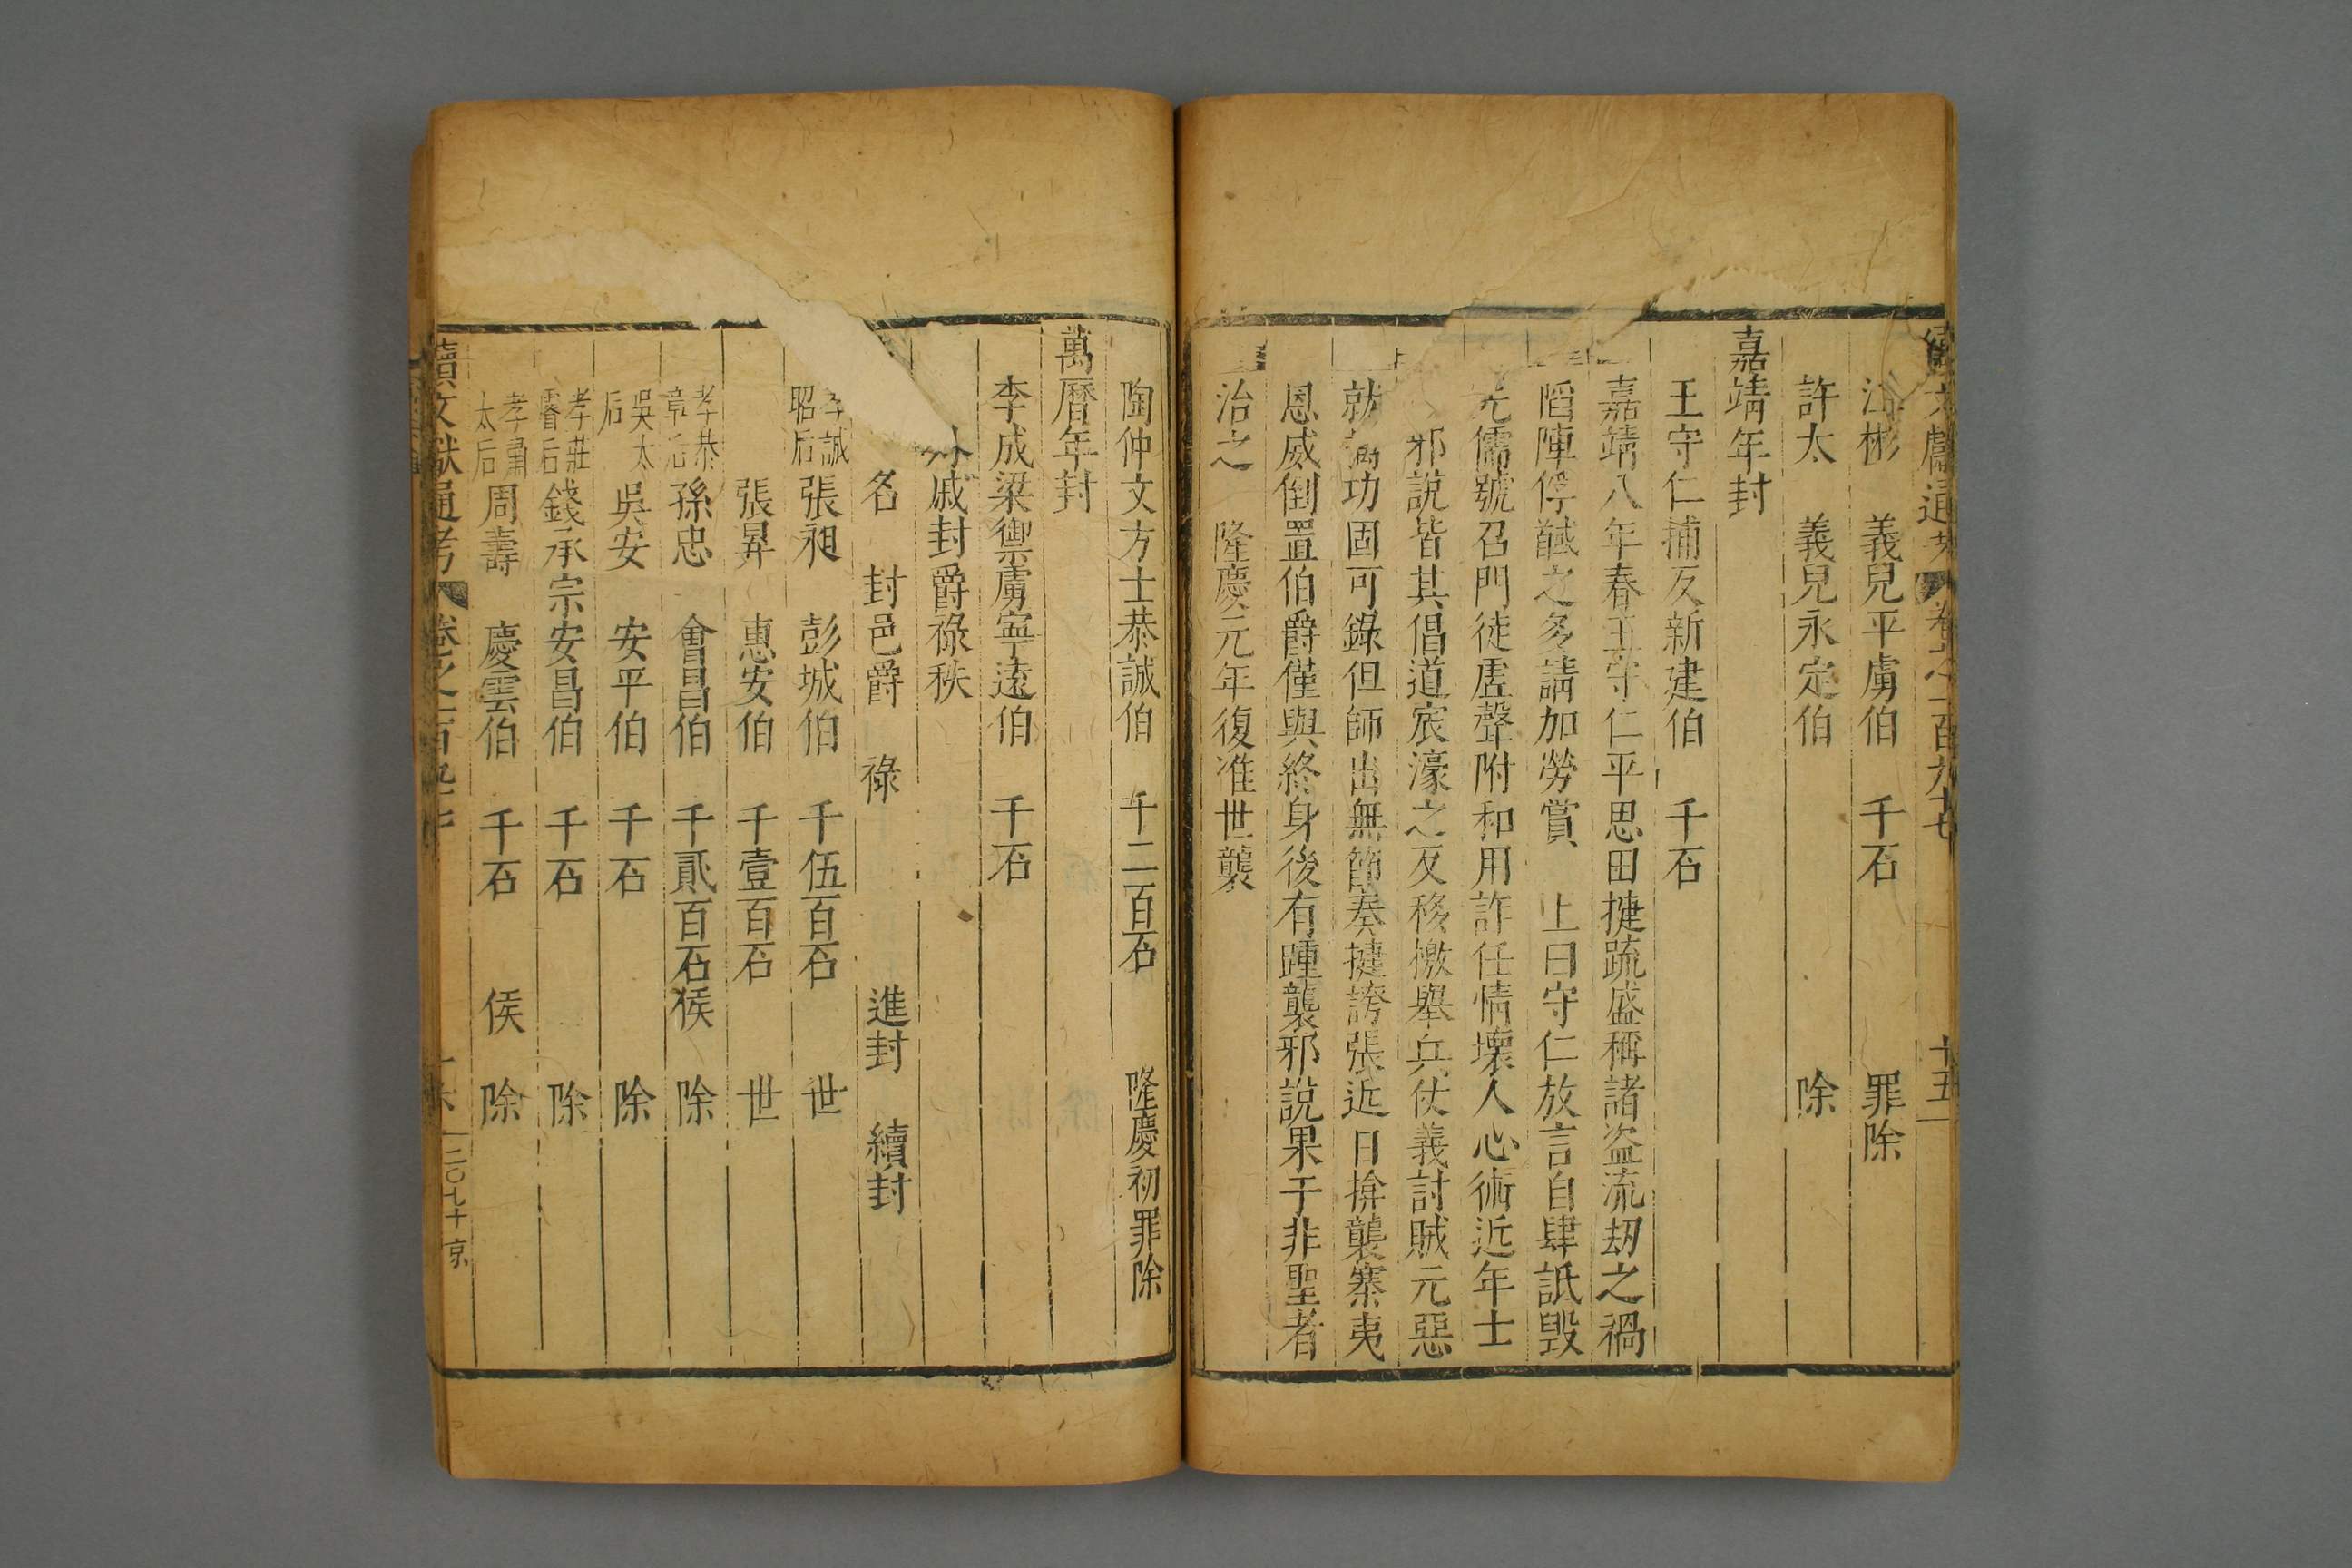 續文獻通考 卷之一百九十七 十五
江彬 義兒平虜伯 千石 罪除
許太 義兒永定伯 除
嘉靖年封
王守仁捕反新建伯 千石
嘉靖八年春王守仁平思田捷疏盛稱諸盜流刼之禍
陷陣俘馘之多請加勞賞 上曰守仁放言自肆詆毀
先儒號召門徒虛聲附和用詐任情壞人心術近年士
邪說皆其倡道宸濠之反移檄舉兵仗義討賊元惡
就擒功固可錄但師出無節奏捷誇張近日掩襲寨夷
恩威倒置伯爵僅與終身後有踵襲邪說果于非聖者
治之 隆慶元年復准世襲
陶仲文方士恭誠伯 千二百石 隆慶初罪除
萬曆年封
李成梁禦虜寧遠伯 千石
外戚封爵祿秩
名 封邑爵 祿 進封 續封
孝誠昭后張昶 彭城伯 千伍百石 世
張昇 惠安伯 千壹百石 世
孝恭章后孫忠 會昌伯 千貳百石 侯 除
吳太后吳安 安平伯 千石 除
孝莊睿后錢承宗 安昌伯 千石 除
孝肅太后周壽 慶雲伯 千石 侯 除
續文獻通考 卷之一百九十七 二〇七十 京